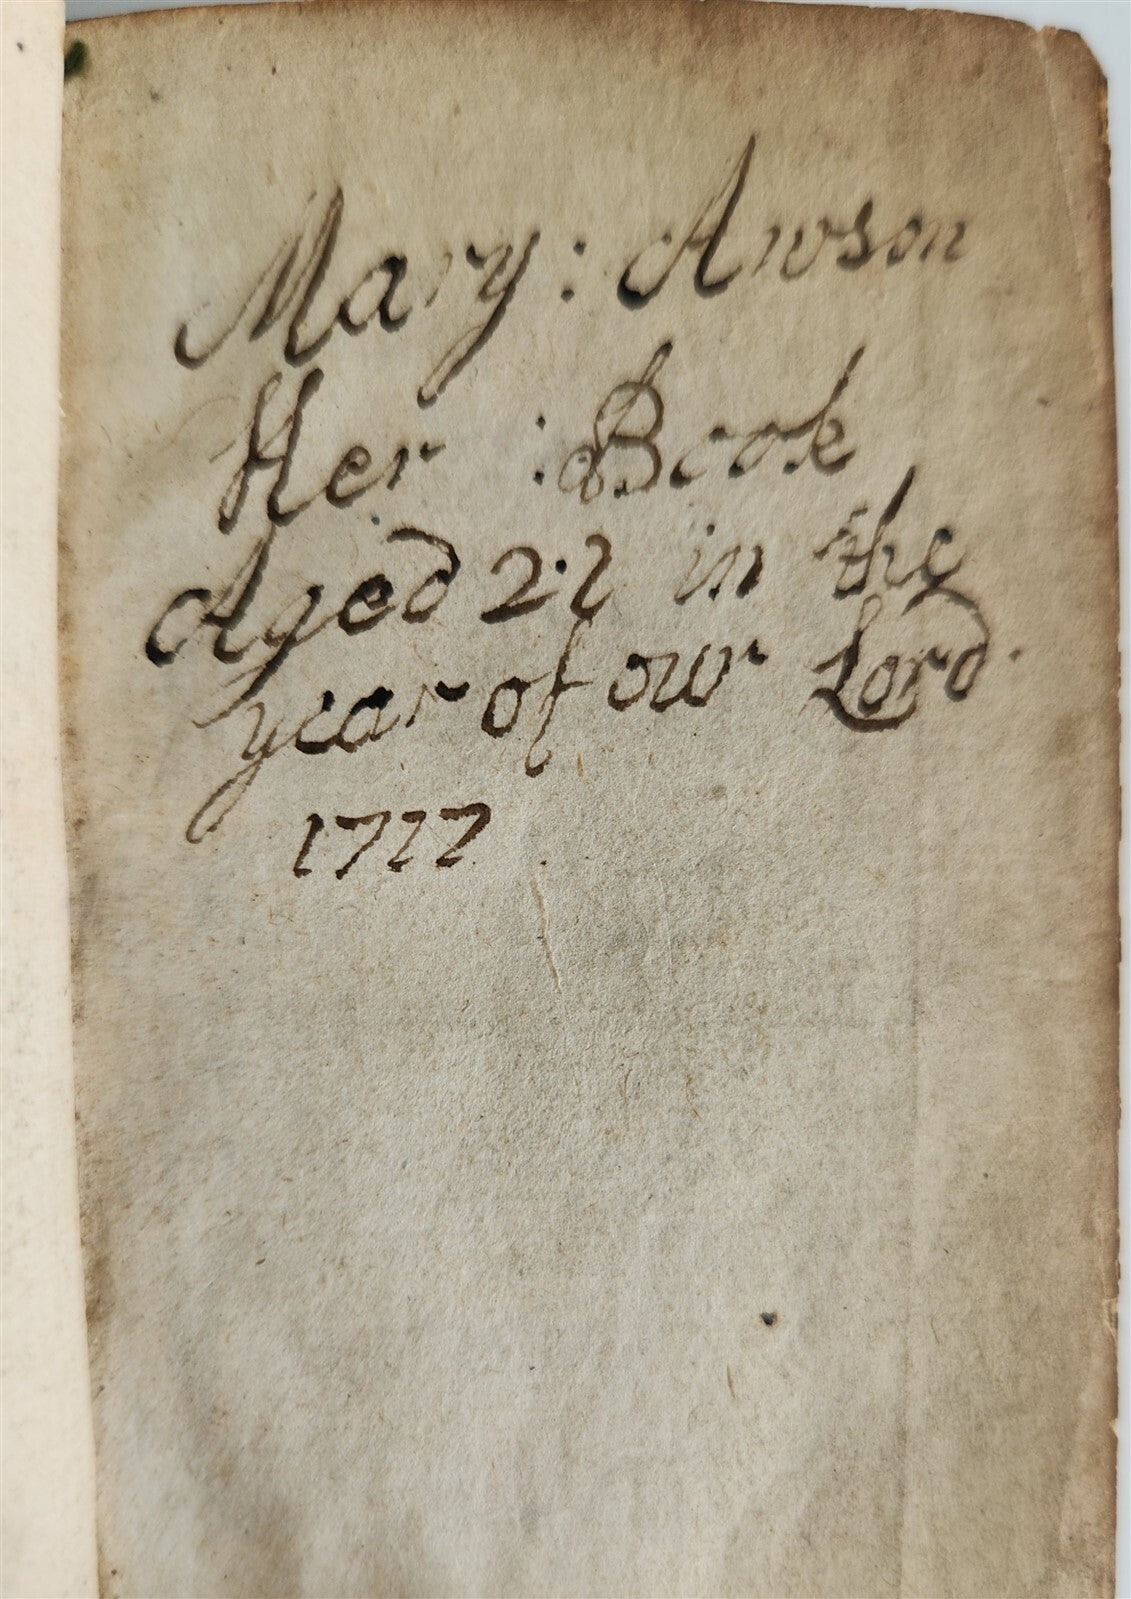 Mary: Awson
Her :Book
Aged 22 in the
year of our Lord.
1727